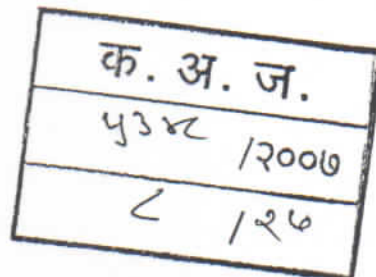 क. अ. ज.
५३४८ /२००७
८ /२७